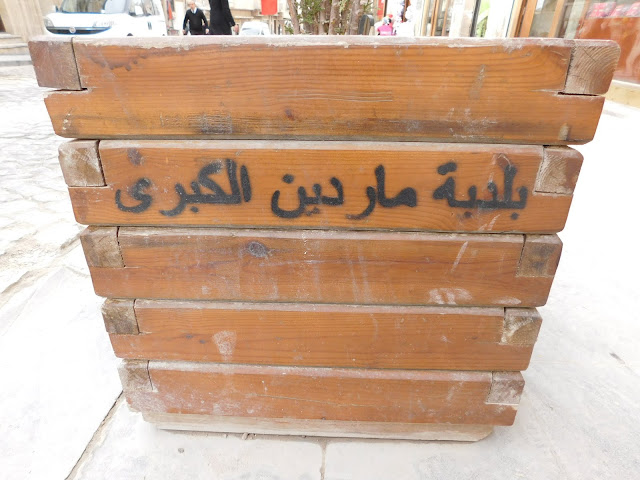 بلدية ماردين الكبرى